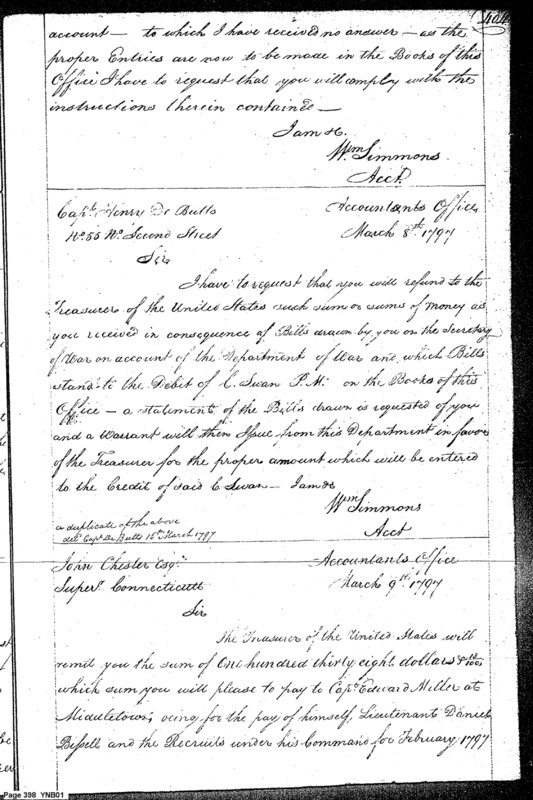 account — to which I have received no answer — as the
proper Entries are now to be made in the Books of this
Office I have to request that you will comply with the
instructions therein containd —
I am &c.
Wm Simmons
Acct.
Capt. Henry De Butts
No. 55 No. Second Street
Accountants Office
March 8th 1797
Sir
I have to request that you will refund to the
Treasurer of the United States such sum or sums of money as
you received in consequence of Bills drawn by you on the Secretary
of War on account of the Department of War and, which Bills
stand to the Debit of C. Swan P.M. on the Books of this
Office — a statement of the Bills drawn is requested of you
and a Warrant will then Issue from this Department in favor
of the Treasurer for the proper amount which will be entered
to the Credit of said C Swan — I am &c
Wm Simmons
Acct
a duplicate of the above
Capt. De Butts 15th March 1797
John Chester Esqr.
Superr. Connecticutt
Accountants Office
March 9th 1797
Sir
The Treasurer of the United States will
remit you the sum of One hundred thirty eight dollars
which sum you will please to pay to Capt. Edward Miller at
Middletown, being for the pay of himself, Lieutenant Daniel
Bissell and the Recruits under his Command for February 1797
Page 398 YNB01